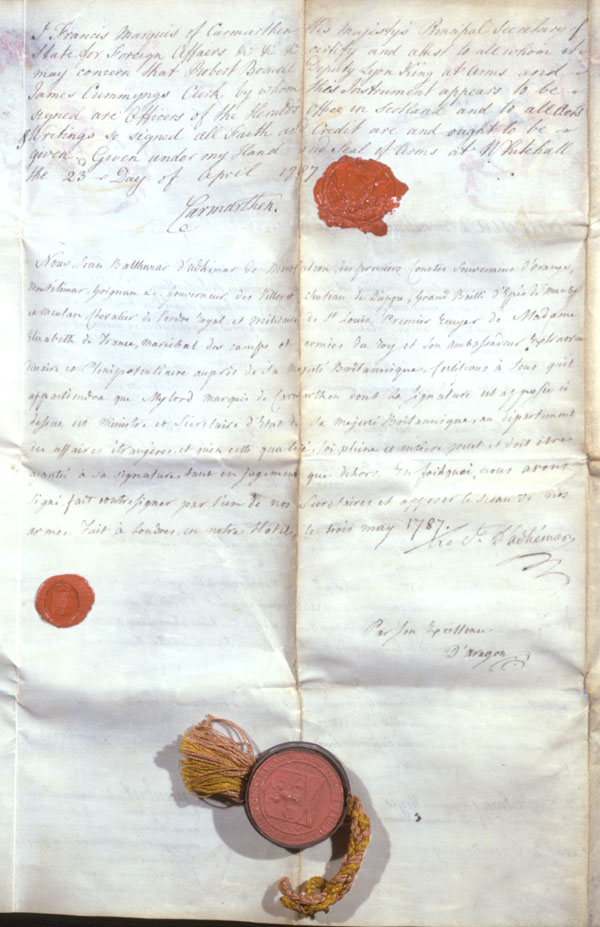 I Francis Marquis of Carmarthen His Majesty's Principal Secretary of
State for Foreign Affairs &c &c &c certify and attest to all whom it
may concern that Robert Boswell Deputy Lyon King at Arms and
James Cummyngs Clerk by whom this Instrument appears to be
signed are Officers of the Heralds Office in Scotland and to all Acts
& Writings so signed all Faith and Credit are and ought to be
given Given under my Hand and Seal of Arms at Whitehall
the 23 Day of April 1787
Carmarthen.
Nous Jean Balthazar d'adhémar de Montfalcon des premiers Comtes Souverains d'orange,
Montelimar, Grignan &c. Gouverneur des Villes et chateau de Grand Bailli d'Epée de
et Meulan, Chevalier de l'ordre Royal et Militaire de St Louis, Premier Ecuyer de Madame
Elizabeth de France, maréchal des camps et armées du Roy et son Ambassadeur Extraor
dinaire et Plenipotentiaire auprès de Sa Majesté Britannique. Certifions à tous qu'il
appartiendra que Mylord marquis de Carmarthen dont la signature est apposée ci
dessus est Ministre et Sécrétaire d'Etat de Sa majesté Britannique, au Département
des affaires étrangères, et qu'en cette qualité, foi pleine et entière peut et doit être
à sa signature, tant en jugement que dehors. En foi de quoi, nous avons
signé fait contresigner par l'un de nos Sécrétaires et apposer le sceau de nos
armes. Fait à Londres, en notre Hotel, le trois may 1787.
d'adhémar
Par Son Excellence
D'aragon